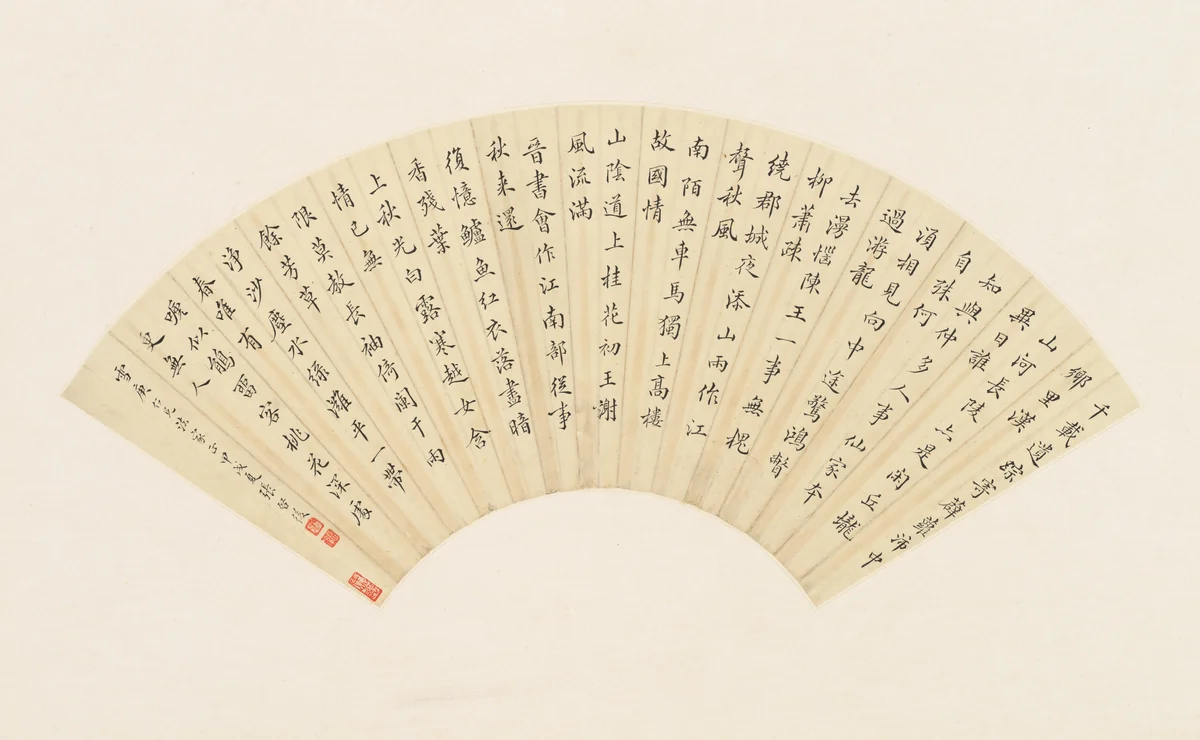 千載遺蹤寄薜蘿沛中
鄉里漢
山河長陵六是閑丘壠
異日誰
知與仲多人事仙家本
自殊何
須相見向中途驚鴻瞥
過游龍
去漫惱陳王一事無槐
柳蕭疎
繞郡城夜添山雨作江
聲秋風
南陌無車馬獨上高樓
故國情
山陰道上桂花初王謝
風流滿
晉書會作江南部從事
秋來還
復憶鱸魚紅衣落盡暗
香殘葉
上秋光白露寒越女含
情已無
限莫教長袖倚闌干雨
餘芳草
淨沙塵水綠灘平一帶
春唯有
嗁似鵑畱客桃花深處
更無人
雪庚仁兄法家正甲戌夏張啓後